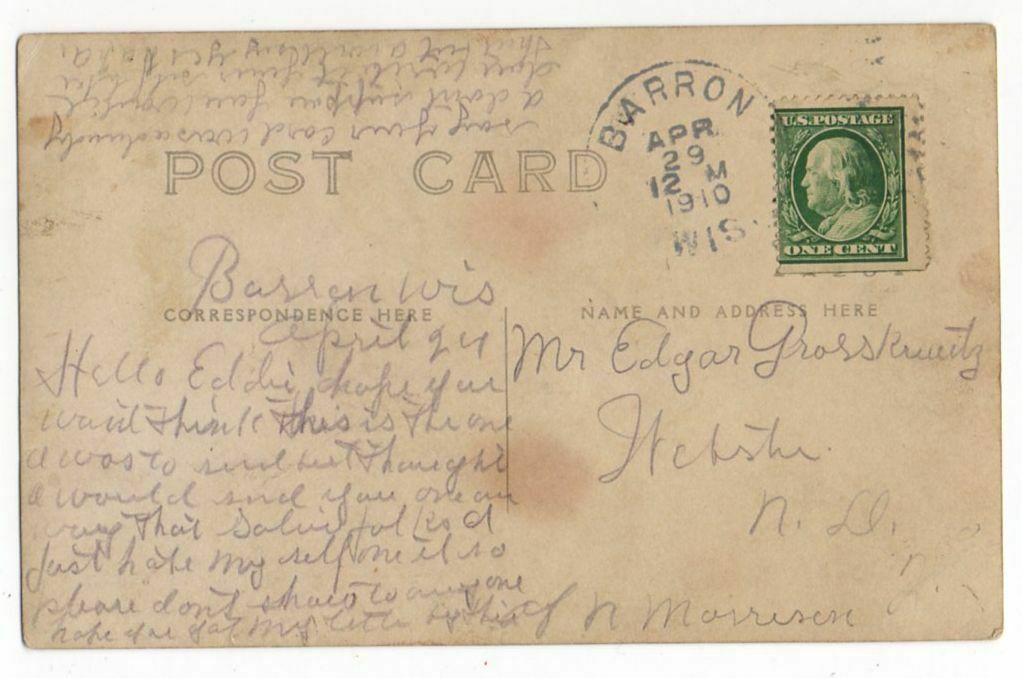 say your card was a dandy
I don't suppose you
POST CARD
BARRON
APR
29
12 M
1910
WIS.
U.S. POSTAGE
ONE CENT
Barron Wis
CORRESPONDENCE HERE
April 29
Hello Eddie, hope you
wont think this is the one
I was to send but thought
I would send you one any
way that
Just hate my self on it so
please don't show to anyone
hope you got my letter by this
NAME AND ADDRESS HERE
Mr Edgar Grosskruetz
Webster
N. D.
N Morrison